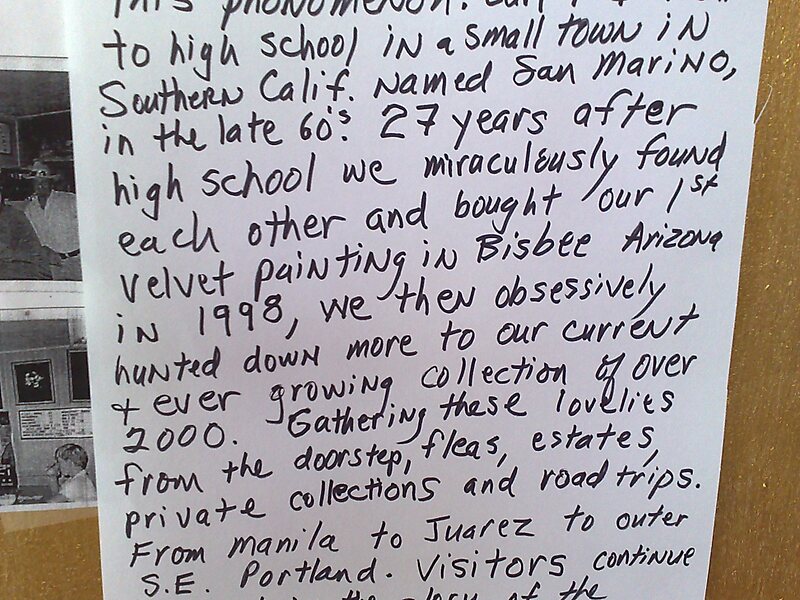 this phonomenon.
to high school in a small town in
Southern Calif. named San Marino,
in the late 60's. 27 years after
high school we miraculously found
each other and bought our 1st
velvet painting in Bisbee Arizona
in 1998, we then obsessively
hunted down more to our current
+ ever growing collection of over
2000. Gathering these lovelies
from the doorstep, fleas, estates,
private collections and road trips.
From manila to Juarez to outer
S.E. Portland. Visitors continue
the of the